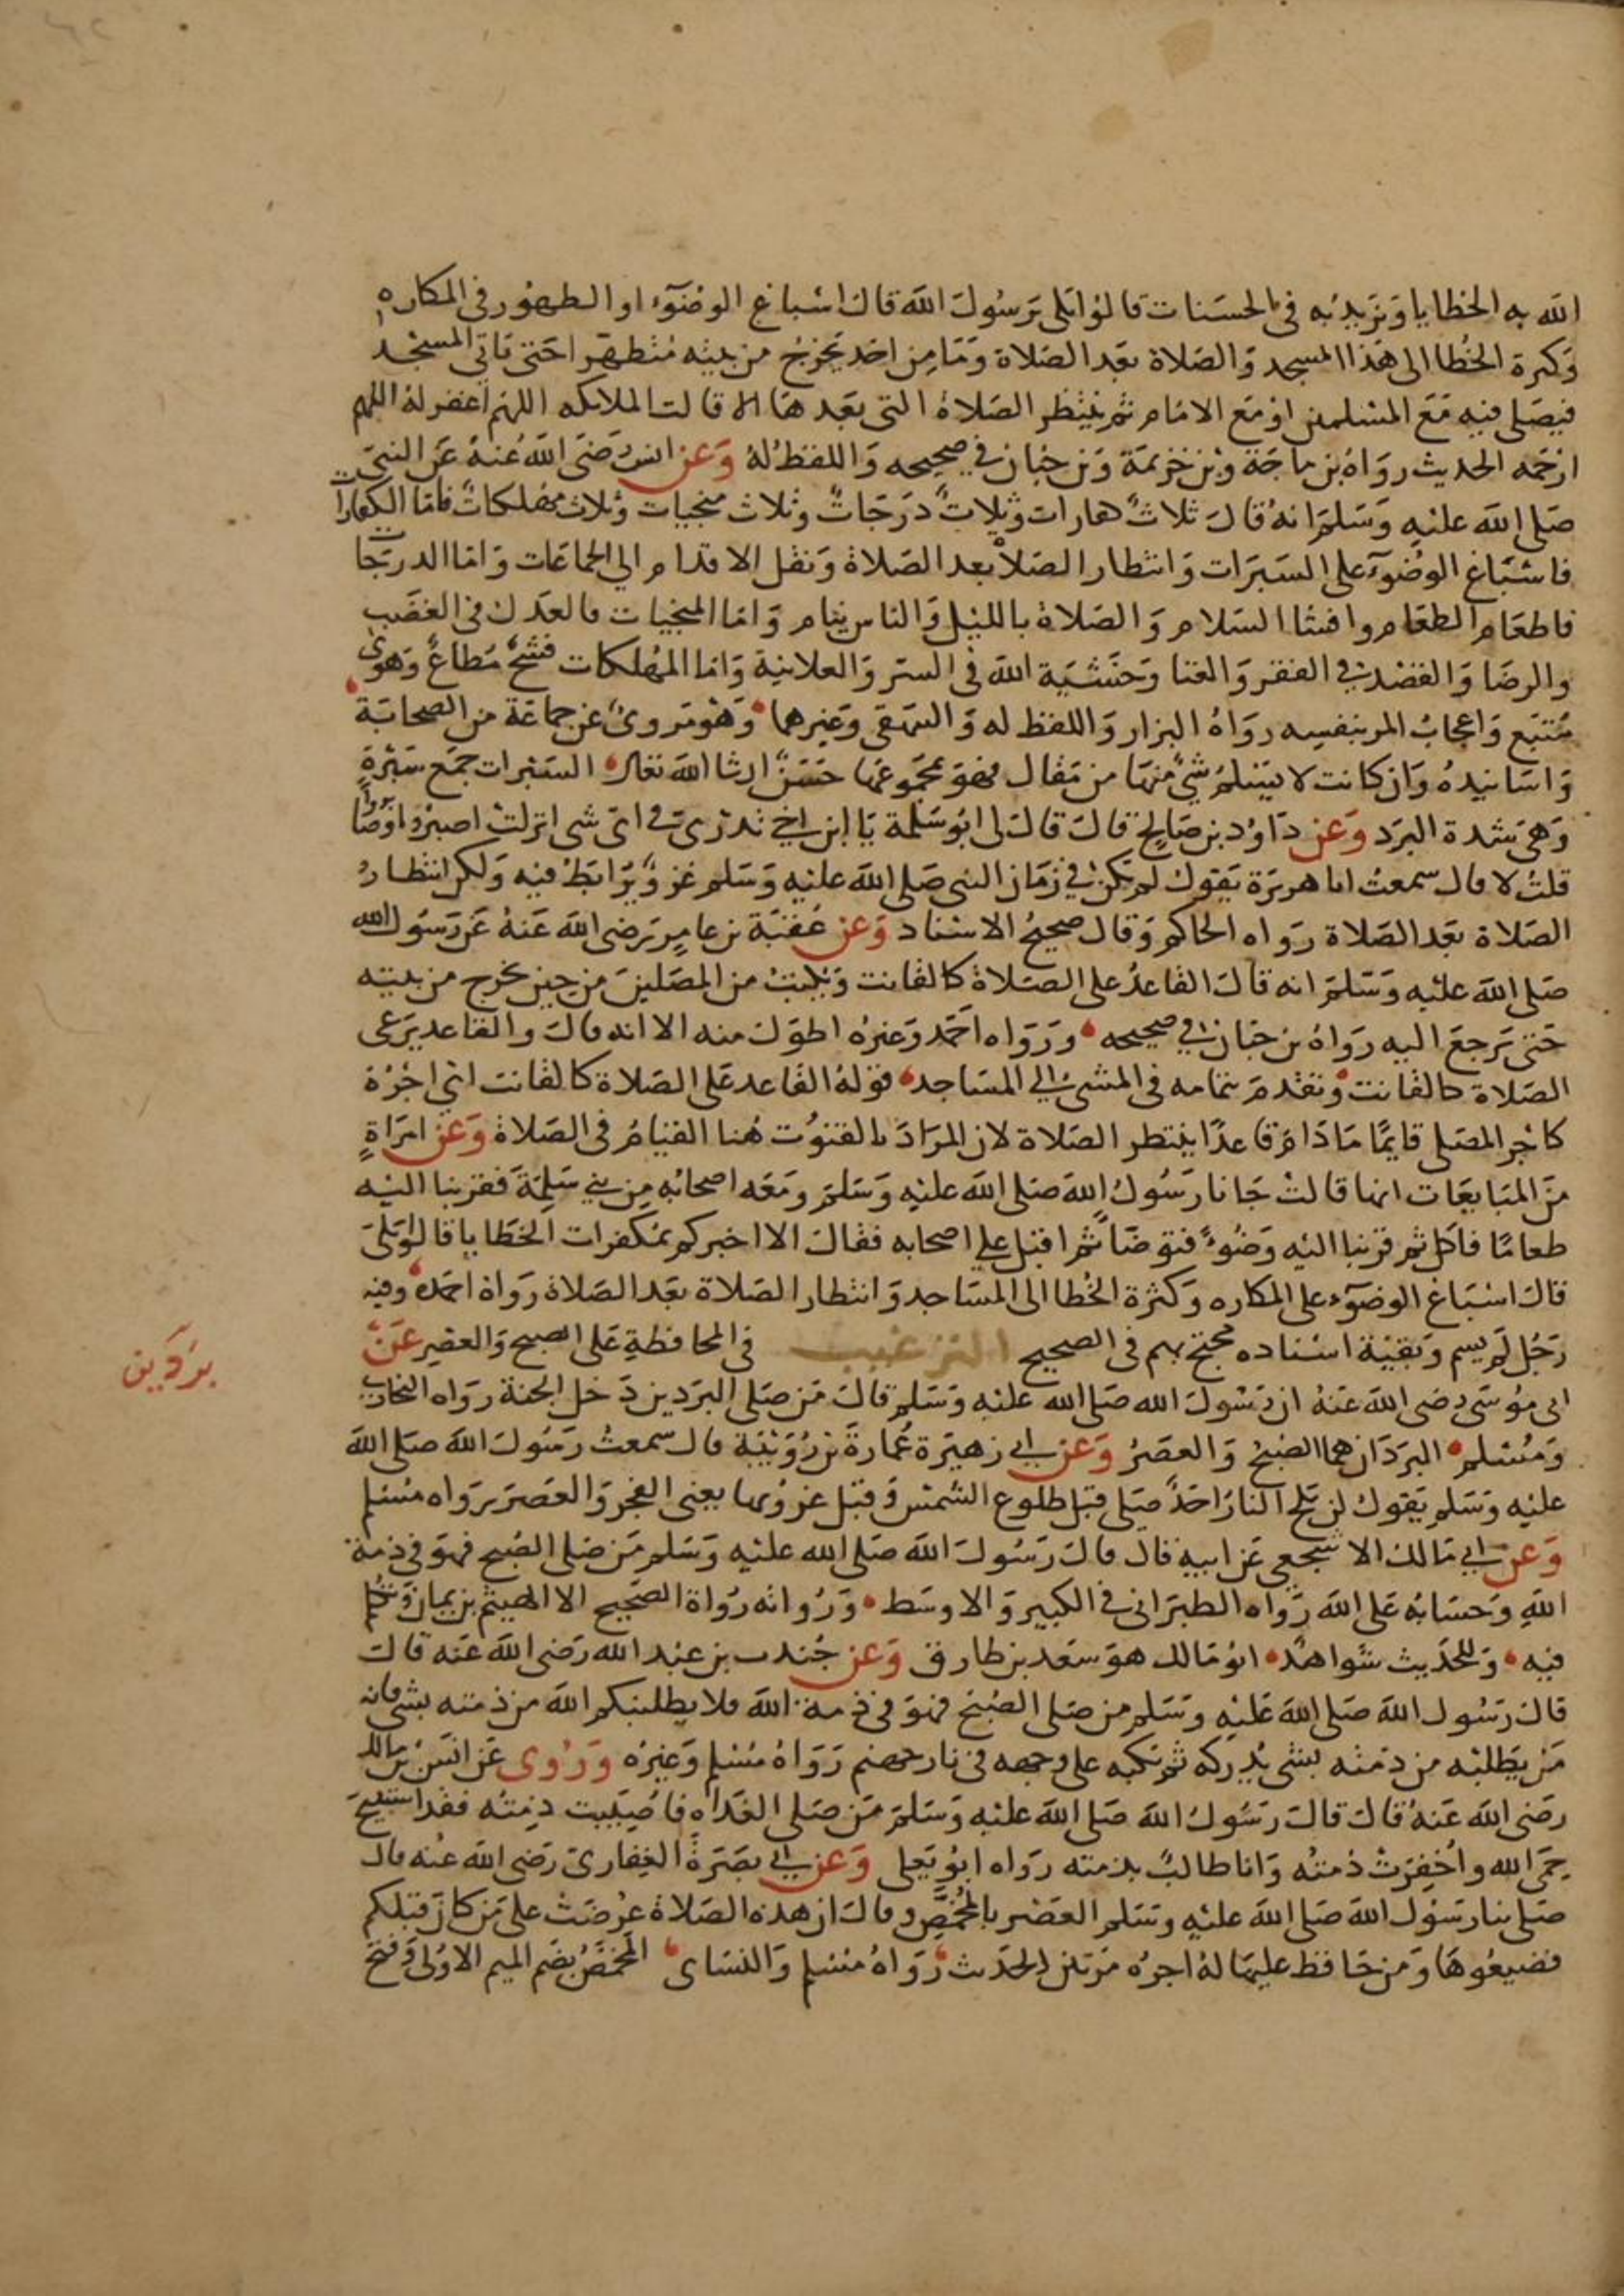 الله به الخطايا ويزيد به في الحسنات قالوا بلى يرسول الله قال اسباغ الوضوء او الطهور في المكاره
وكثرة الخطا الى هذا المسجد والصلاة بعد الصلاة وما من احد يخرج من بيته متطهرا حتى ياتي المسجد
فيصلي فيه مع المسلمين او مع الامام ثم ينتظر الصلاة التي بعدها الا قالت الملايكه اللهم اغفر له اللهم
ارحمه الحديث رواه بن ماجة وبن خزيمة وبن حبان في صحيحه واللفظ له وعن انس رضى الله عنه عن النبي
صلى الله عليه وسلم انه قال ثلاث كفارات وثلاث درجات وثلاث منجيات وثلاث مهلكات فاما الكفارات
فاسباغ الوضوء على السبرات وانتظار الصلاة بعد الصلاة ونقل الاقدام الي الجماعات واما الدرجات
فاطعام الطعام وافشا السلام والصلاة بالليل والناس ينام واما المنجيات فالعدل في الغضب
والرضا والقصد في الفقر والغنا وخشية الله في السر والعلانية واما المهلكات فشح مطاع وهوى
متبع واعجاب المر بنفسه رواه البزار واللفظ له والبيهقي وغيرهما وهو مروى عن جماعة من الصحابة
واسانيده وان كانت لا يسلم شي منها من مقال فهو بمجموعها حسن ان شا الله تعالى السبرات جمع سبرة
وهي شدة البرد وعن داود بن صالح قال قال لى ابو سلمة يا ابن اخي تدرى في اى شى انزلت اصبروا وصابروا ورابطوا
قلت لا قال سمعت ابا هريرة يقول لم يكن في زمان النبى صلى الله عليه وسلم غزو يرابط فيه ولكن انتظار
الصلاة بعد الصلاة رواه الحاكم وقال صحيح الاسناد وعن عقبة بن عامر رضى الله عنه عن رسول الله
صلى الله عليه وسلم انه قال القاعد على الصلاة كالقانت ويكتب من المصلين من حين يخرج من بيته
حتى يرجع اليه رواه بن حبان في صحيحه ورواه احمد وغيره اطول منه الا انه قال والقاعد يرعى
الصلاة كالقانت وتقدم بتمامه في المشى الى المساجد قوله القاعد على الصلاة كالقانت اي اجره
كاجر المصلي قايما ما دام قاعدا ينتظر الصلاة لان المراد بالقنوت هنا القيام في الصلاة وعن امراة
من المبايعات انها قالت جانا رسول الله صلى الله عليه وسلم ومعه اصحابه من بني سلمة فقربنا اليه
طعاما فاكل ثم قربنا اليه وضوء فتوضا ثم اقبل علي اصحابه فقال الا اخبركم بمكفرات الخطايا قالوا بلى
قال اسباغ الوضوء على المكاره وكثرة الخطا الى المساجد وانتظار الصلاة بعد الصلاة رواه احمد وفيه
رجل لم يسم وبقية اسناده محتج بهم في الصحيح الترغيب في المحافظة على الصبح والعصر عن
ابى موسى رضى الله عنه ان رسول الله صلى الله عليه وسلم قال من صلى البردين دخل الجنة رواه البخاري
ومسلم البردان هما الصبح والعصر وعن ابي زهيرة عمارة بن رويبة قال سمعت رسول الله صلى الله
عليه وسلم يقول لن يلج النار احد صلى قبل طلوع الشمس وقبل غروبها يعنى الفجر والعصر رواه مسلم
وعن ابي مالك الاشجعي عن ابيه قال قال رسول الله صلى الله عليه وسلم من صلى الصبح فهو في ذمة
الله وحسابه على الله رواه الطبرانى في الكبير والاوسط ورواته رواة الصحيح الا الهيثم بن يمان وتكلم
فيه وللحديث شواهد ابو مالك هو سعد بن طارق وعن جندب بن عبد الله رضى الله عنه قال
قال رسول الله صلى الله عليه وسلم من صلى الصبح فهو في ذمة الله فلا يطلبنكم الله من ذمته بشى فانه
من يطلبه من ذمته بشى يدركه ثم يكبه على وجهه في نار جهنم رواه مسلم وغيره وروى عن انس بن مالك
رضى الله عنه قال قال رسول الله صلى الله عليه وسلم من صلى الغداه فاصيبت ذمته فقد استبيح
حمى الله واخفرت ذمته وانا طالب بذمته رواه ابو يعلى وعن ابي بصرة الغفارى رضى الله عنه قال
صلى بنا رسول الله صلى الله عليه وسلم العصر بالمخمص وقال ان هذه الصلاة عرضت على من كان قبلكم
فضيعوها ومن حافظ عليها له اجره مرتين الحديث رواه مسلم والنساى المخمص بضم الميم الاولى وفتح
بردين